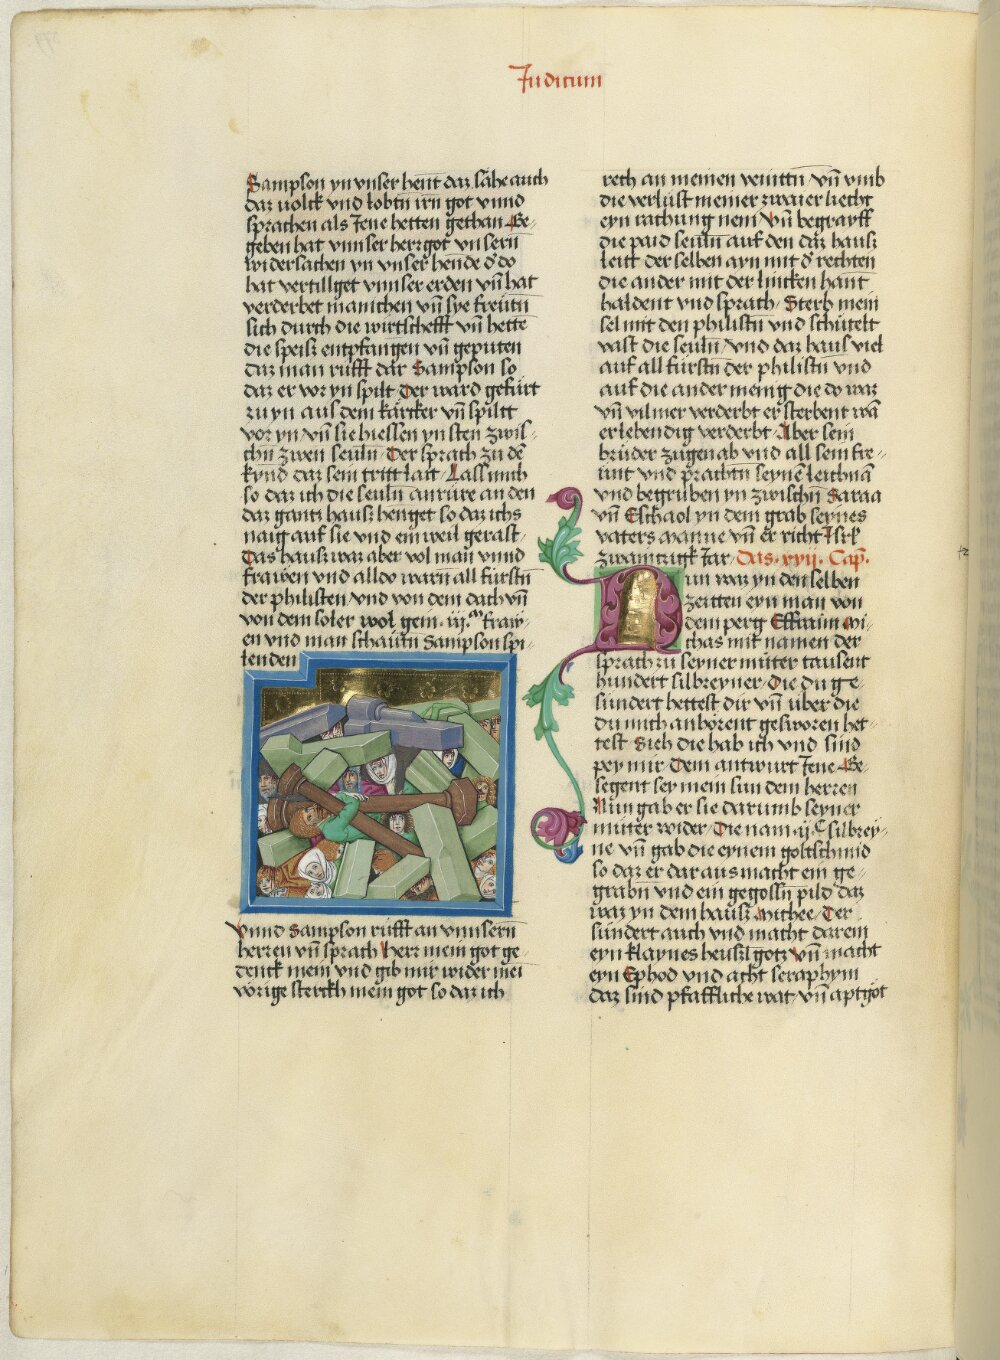 Judicum
Sampson yn vnser hent daz sahe auch
daz volck vnd lobtn irn got vnnd
sprachen als Jene hetten gethan Ge-
geben hat vnnser herrgot vnsern
widersachen yn vnser hende d do
hat vertillget vnnser erden vn̄ hat
verderbet manichen vn̄ sye freutn
sich durch die wirtschefft vn̄ hette
die speisz entpfangen vn̄ geputen
daz man rufft dar Sampson so
daz er vor yn spilt Der ward gefurt
zu yn aus dem karcker vn̄ spiltt
vor yn vn̄ sie hiessen yn sten zwis-
chn zwen seuln Der sprach zu de
kynd daz sein tritt lait Lass mich
so daz ich die seuln anrure an den
daz gantz hausz henget so daz ichs
naig auf sie vnd ein weil gerast
Das hausz waz aber vol man vnnd
frawen vnd alldo warn all furstn
der philisten vnd von dem dach vn̄
von dem soler wol gein .iij.m fraw-
en vnd man schautn Sampson spi-
lenden
Vnnd Sampson rufft an vnnsern
herren vn̄ sprach herr mein got ge
denck mein vnd gib mir wider mei
vorige sterckh mein got so daz ich
rech an meinen veintn vn̄ vmb
die verlust meiner zwaier liecht
eyn rachung nem vn̄ begrayff
die paid seuln auf den daz hausz
leitt der selben ayn mit d rechten
die ander mit der lincken hant
haldent vnd sprach Sterb mein
sel mit den philistn vnd schutelt
vast die seuln vnd daz haus viel
auf all furstn der philistn vnd
auf die ander menig die do waz
vn̄ vil mer verderbt er sterbent wan
er lebendig verderbt Aber sein
bruder zugen ab vnd all sein fre-
unt vnd prachtn seynē leichnā
vnd begruben yn zwischn Saraa
vn̄ Eschaol yn dem grab seynes
vaters manne vn̄ er richt Isrl
zwaintzigk Jar Das .xvij. Cap.
Nun waz yn den selben
zeitten eyn man von
dem perg Effraim mi-
chas mit namen der
sprach zu seyner muter tausent
hundert silbreyner Die du ge-
sundert hettest dir vn̄ uber die
du mich anhorent gesworen het-
test Sieh die hab ich vnd sind
pey mir Dem antwurt Jene Ge-
segent sey mein sun dem herren
Nun gab er sie darumb seyner
muter wider Die nam .ij.c silbrey-
ne vn̄ gab die eynem goltschmid
so daz er dar aus macht ein ge-
grabn vnd ein gegossn pild daz
waz yn dem hausz Mithee Der
sundert auch vnd macht darein
eyn klaynes heuszl gotz vn̄ macht
eyn Ephod vnd acht seraphym
daz sind pfaffliche wat vn̄ aptgot